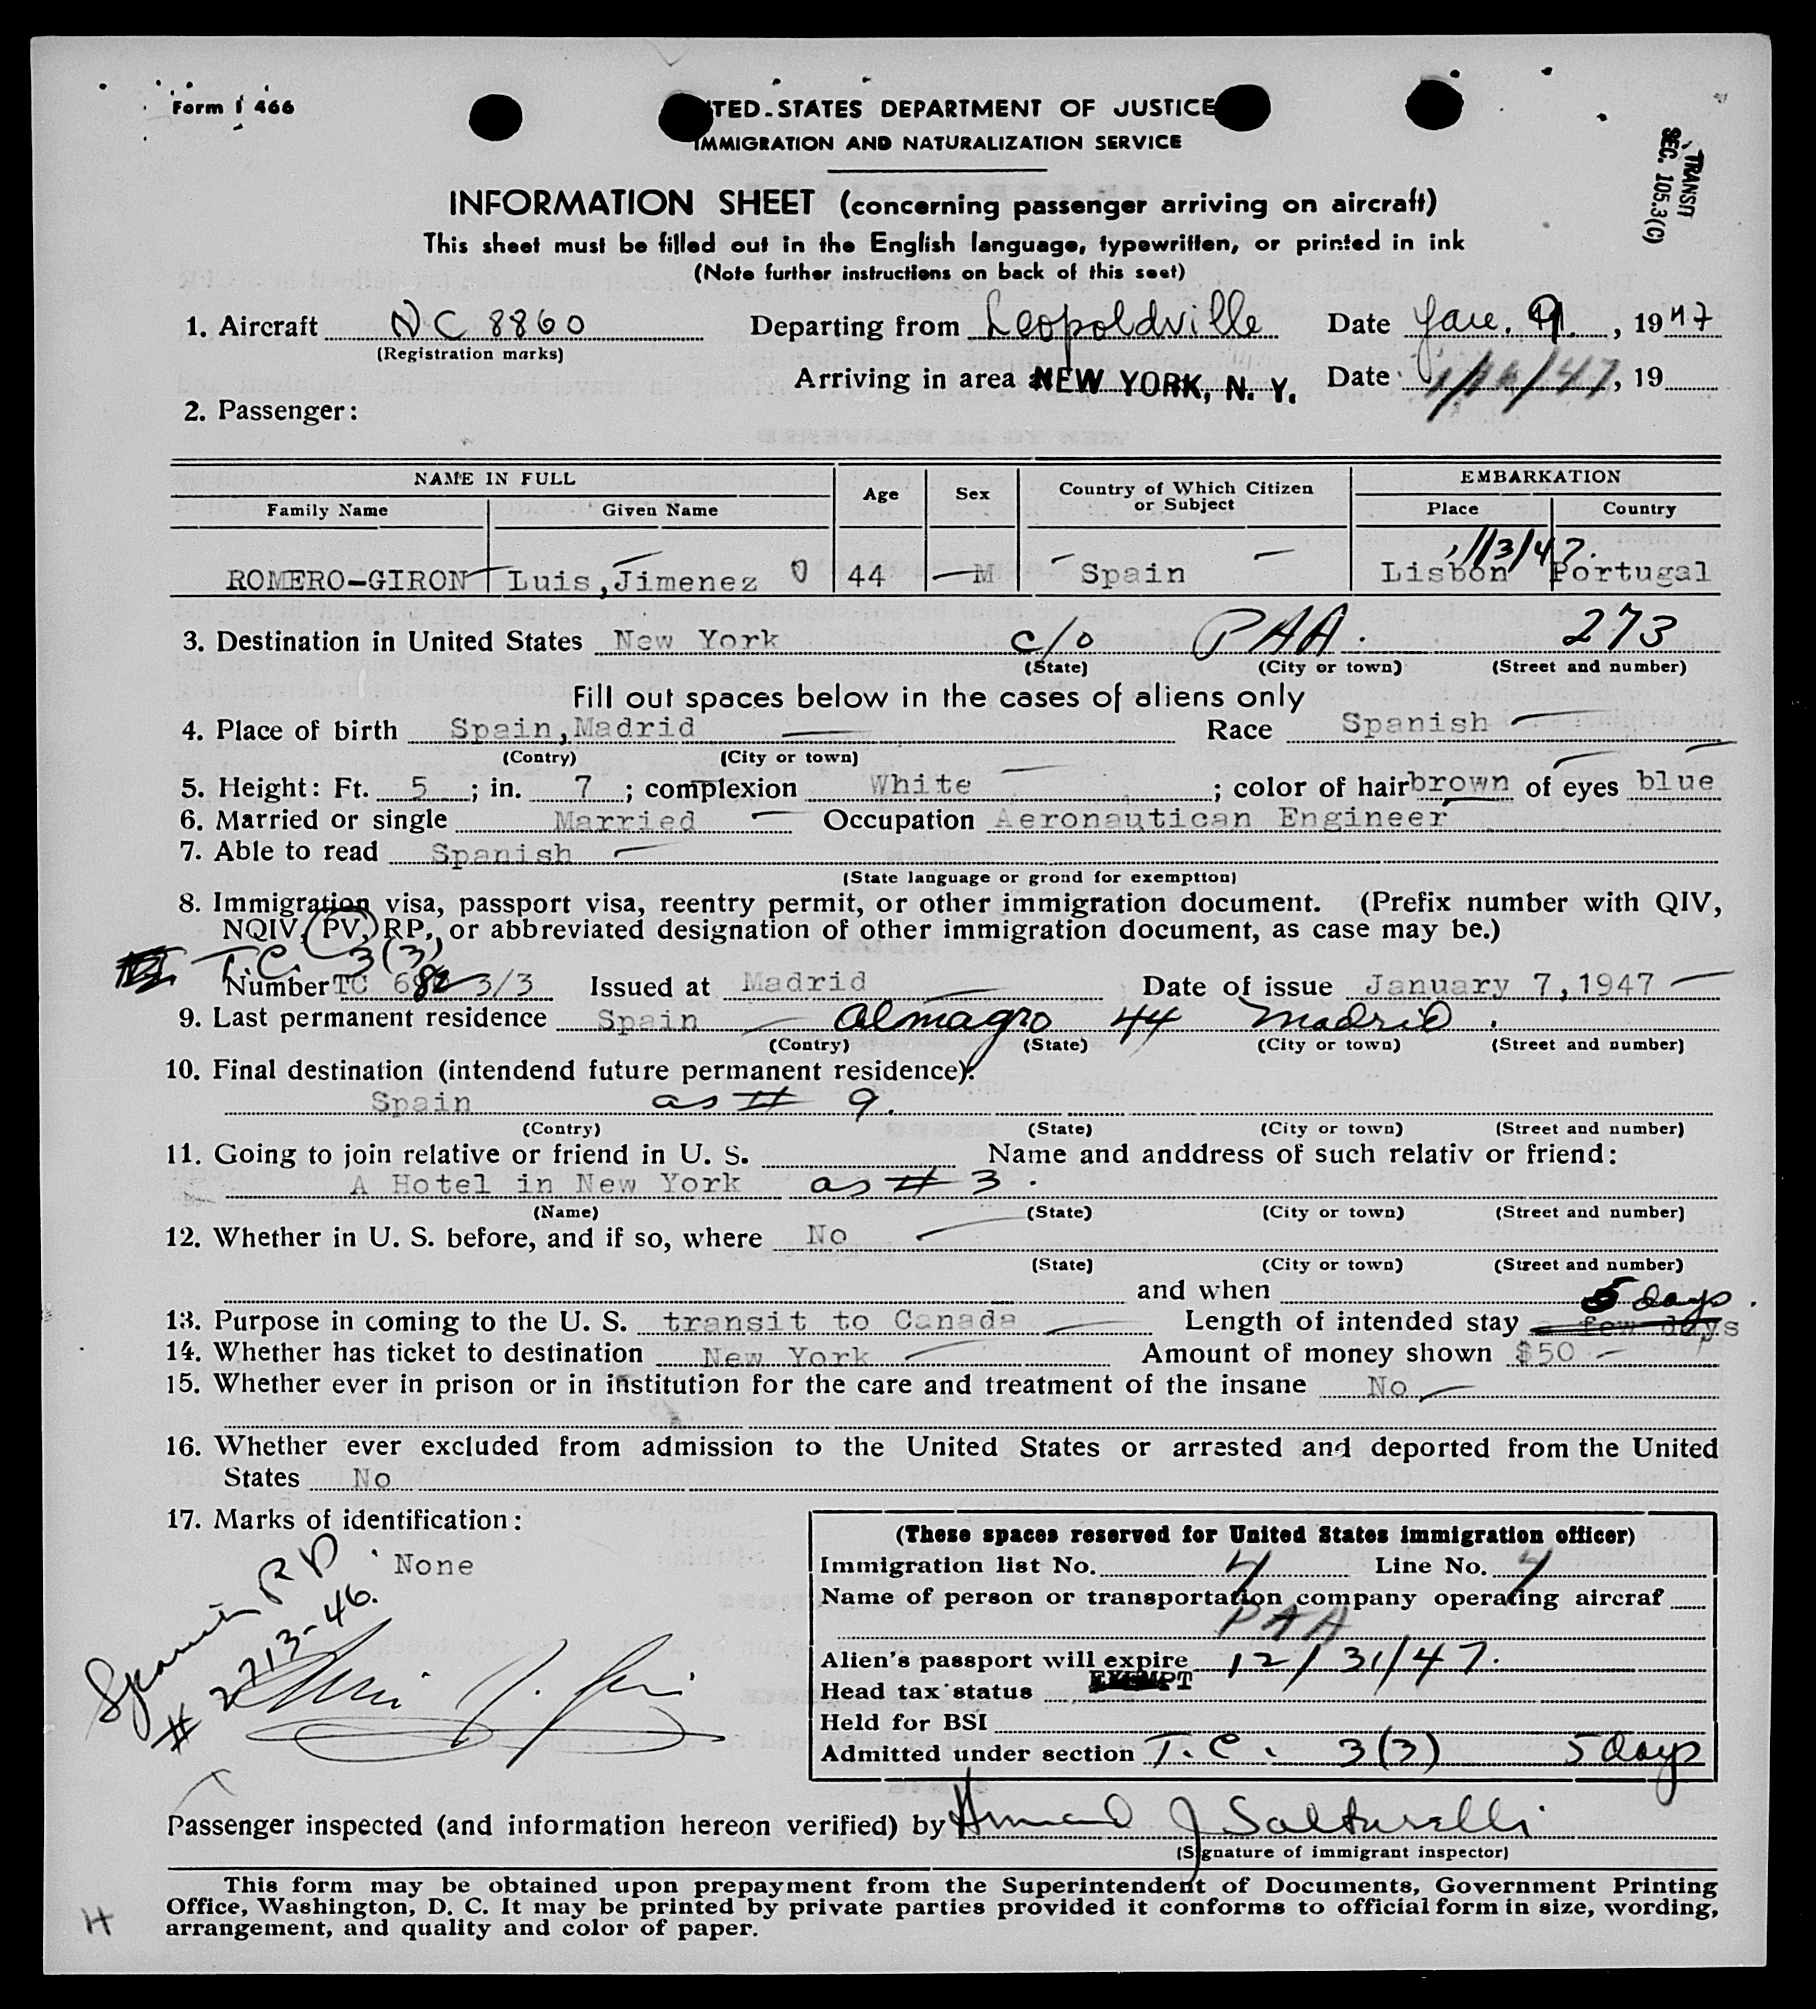 Form I 466
TED STATES DEPARTMENT OF JUSTICE
IMMIGRATION AND NATURALIZATION SERVICE
TRANSIT
SEC. 105.3(C)
INFORMATION SHEET (concerning passenger arriving on aircraft)
This sheet must be filled out in the English language, typewritten, or printed in ink
(Note further instructions on back of this seet)
1. Aircraft NC 8860 Departing from Leopoldville Date Jan. 9, 1947
(Registration marks)
Arriving in area NEW YORK, N. Y. Date 1/ /47, 19
2. Passenger:
NAME IN FULL Age Sex Country of Which Citizen or Subject EMBARKATION
Family Name Given Name Place Country
1/13/47.
ROMERO-GIRON Luis, Jimenez 44 M Spain Lisbon Portugal
3. Destination in United States New York c/o PAA. 273
(State) (City or town) (Street and number)
Fill out spaces below in the cases of aliens only
4. Place of birth Spain, Madrid Race Spanish
(Contry) (City or town)
5. Height: Ft. 5; in. 7; complexion White; color of hair brown of eyes blue
6. Married or single Married Occupation Aeronautican Engineer
7. Able to read Spanish
(State language or grond for exemptton)
8. Immigration visa, passport visa, reentry permit, or other immigration document. (Prefix number with QIV,
NQIV, PV, RP., or abbreviated designation of other immigration document, as case may be.)
T.C. 3(3)
Number TC 682 3/3 Issued at Madrid Date of issue January 7, 1947
9. Last permanent residence Spain Almagro 44 Madrid.
(Contry) (State) (City or town) (Street and number)
10. Final destination (intendend future permanent residence):
Spain as # 9.
(Contry) (State) (City or town) (Street and number)
11. Going to join relative or friend in U. S. Name and anddress of such relativ or friend:
A Hotel in New York as # 3.
(Name) (State) (City or town) (Street and number)
12. Whether in U. S. before, and if so, where No
(State) (City or town) (Street and number)
and when
5 days.
13. Purpose in coming to the U. S. transit to Canada Length of intended stay a few days
14. Whether has ticket to destination New York Amount of money shown $50
15. Whether ever in prison or in institution for the care and treatment of the insane No
16. Whether ever excluded from admission to the United States or arrested and deported from the United
States No
17. Marks of identification:
None
Spanish PP
# 2713-46.
(These spaces reserved for United States immigration officer)
Immigration list No. 4 Line No. 4
Name of person or transportation company operating aircraf
PAA
Alien's passport will expire 12/31/47.
Head tax status EXEMPT
Held for BSI
Admitted under section T.C. 3(3) 5 days
Passenger inspected (and information hereon verified) by J Salturelli
(Signature of immigrant inspector)
This form may be obtained upon prepayment from the Superintendent of Documents, Government Printing
Office, Washington, D. C. It may be printed by private parties provided it conforms to official form in size, wording,
arrangement, and quality and color of paper.
H